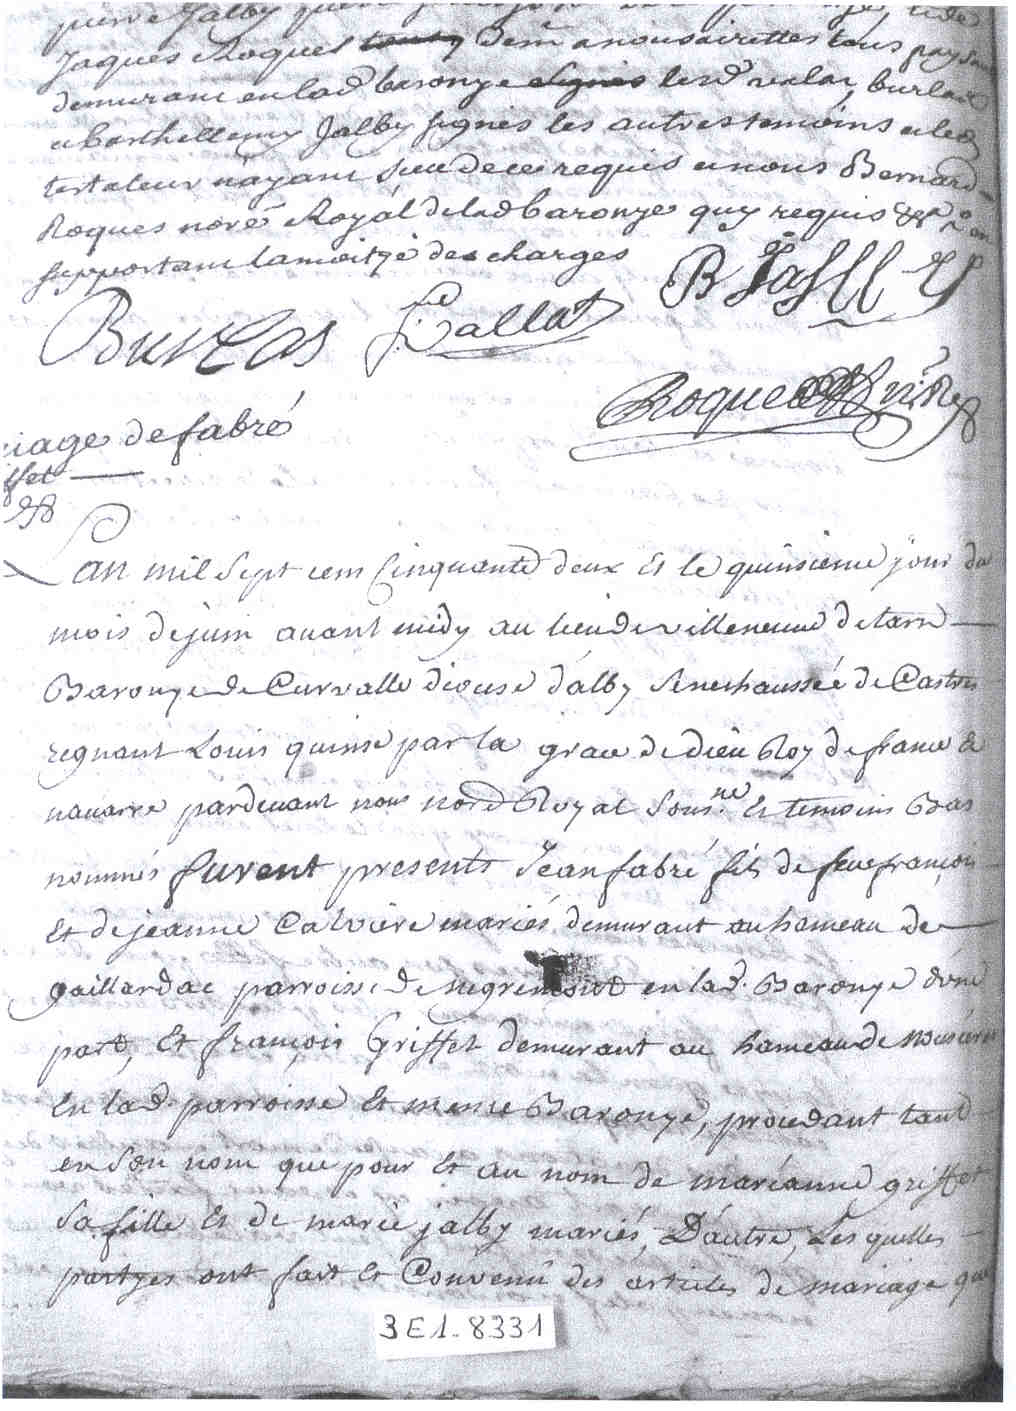 pierre Jalby
Jaques Roques demᵗ a nousairettes tous
demurant en lad baronye lesd valat, burlas
a barthellemy Jalby signés les autres temoins et led
testateur n'ayant sceu de ce requis et nous Bernard
Roques noʳᵉ Royal de lad baronye quy requis
supportant la moitye des charges
Burlas Vallat B Jalby
Roques
riage de fabré
ffet
Lan mil Sept cens Cinquante deux Et le quinsieme jour du
mois de juin avant midy au lieu de villeneuve de tarn
Baronye de Curvalle diocese d'alby Seneshaussée de Castres
regnant Louis quinse par la grace de dieu Roy de france Et
navarre pardevant nous nore Royal Sous.né Et temoins Bas
nommés furent presents Jean fabré fils de feu françois
Et de jeanne Calviere mariés demurant au hameau de
gaillardac parroisse de negremont en lad. Baronye d'une
part, Et françois Griffet demurant au hameau de
En lad. parroisse Et meme Baronye, procedant tant
en Son nom que pour Et au nom de marianne griffet
Sa fille Et de marie jalby mariés, D'autre, Les quelles
partyes ont fait Et Convenu des articles de mariage que
3E1-8331